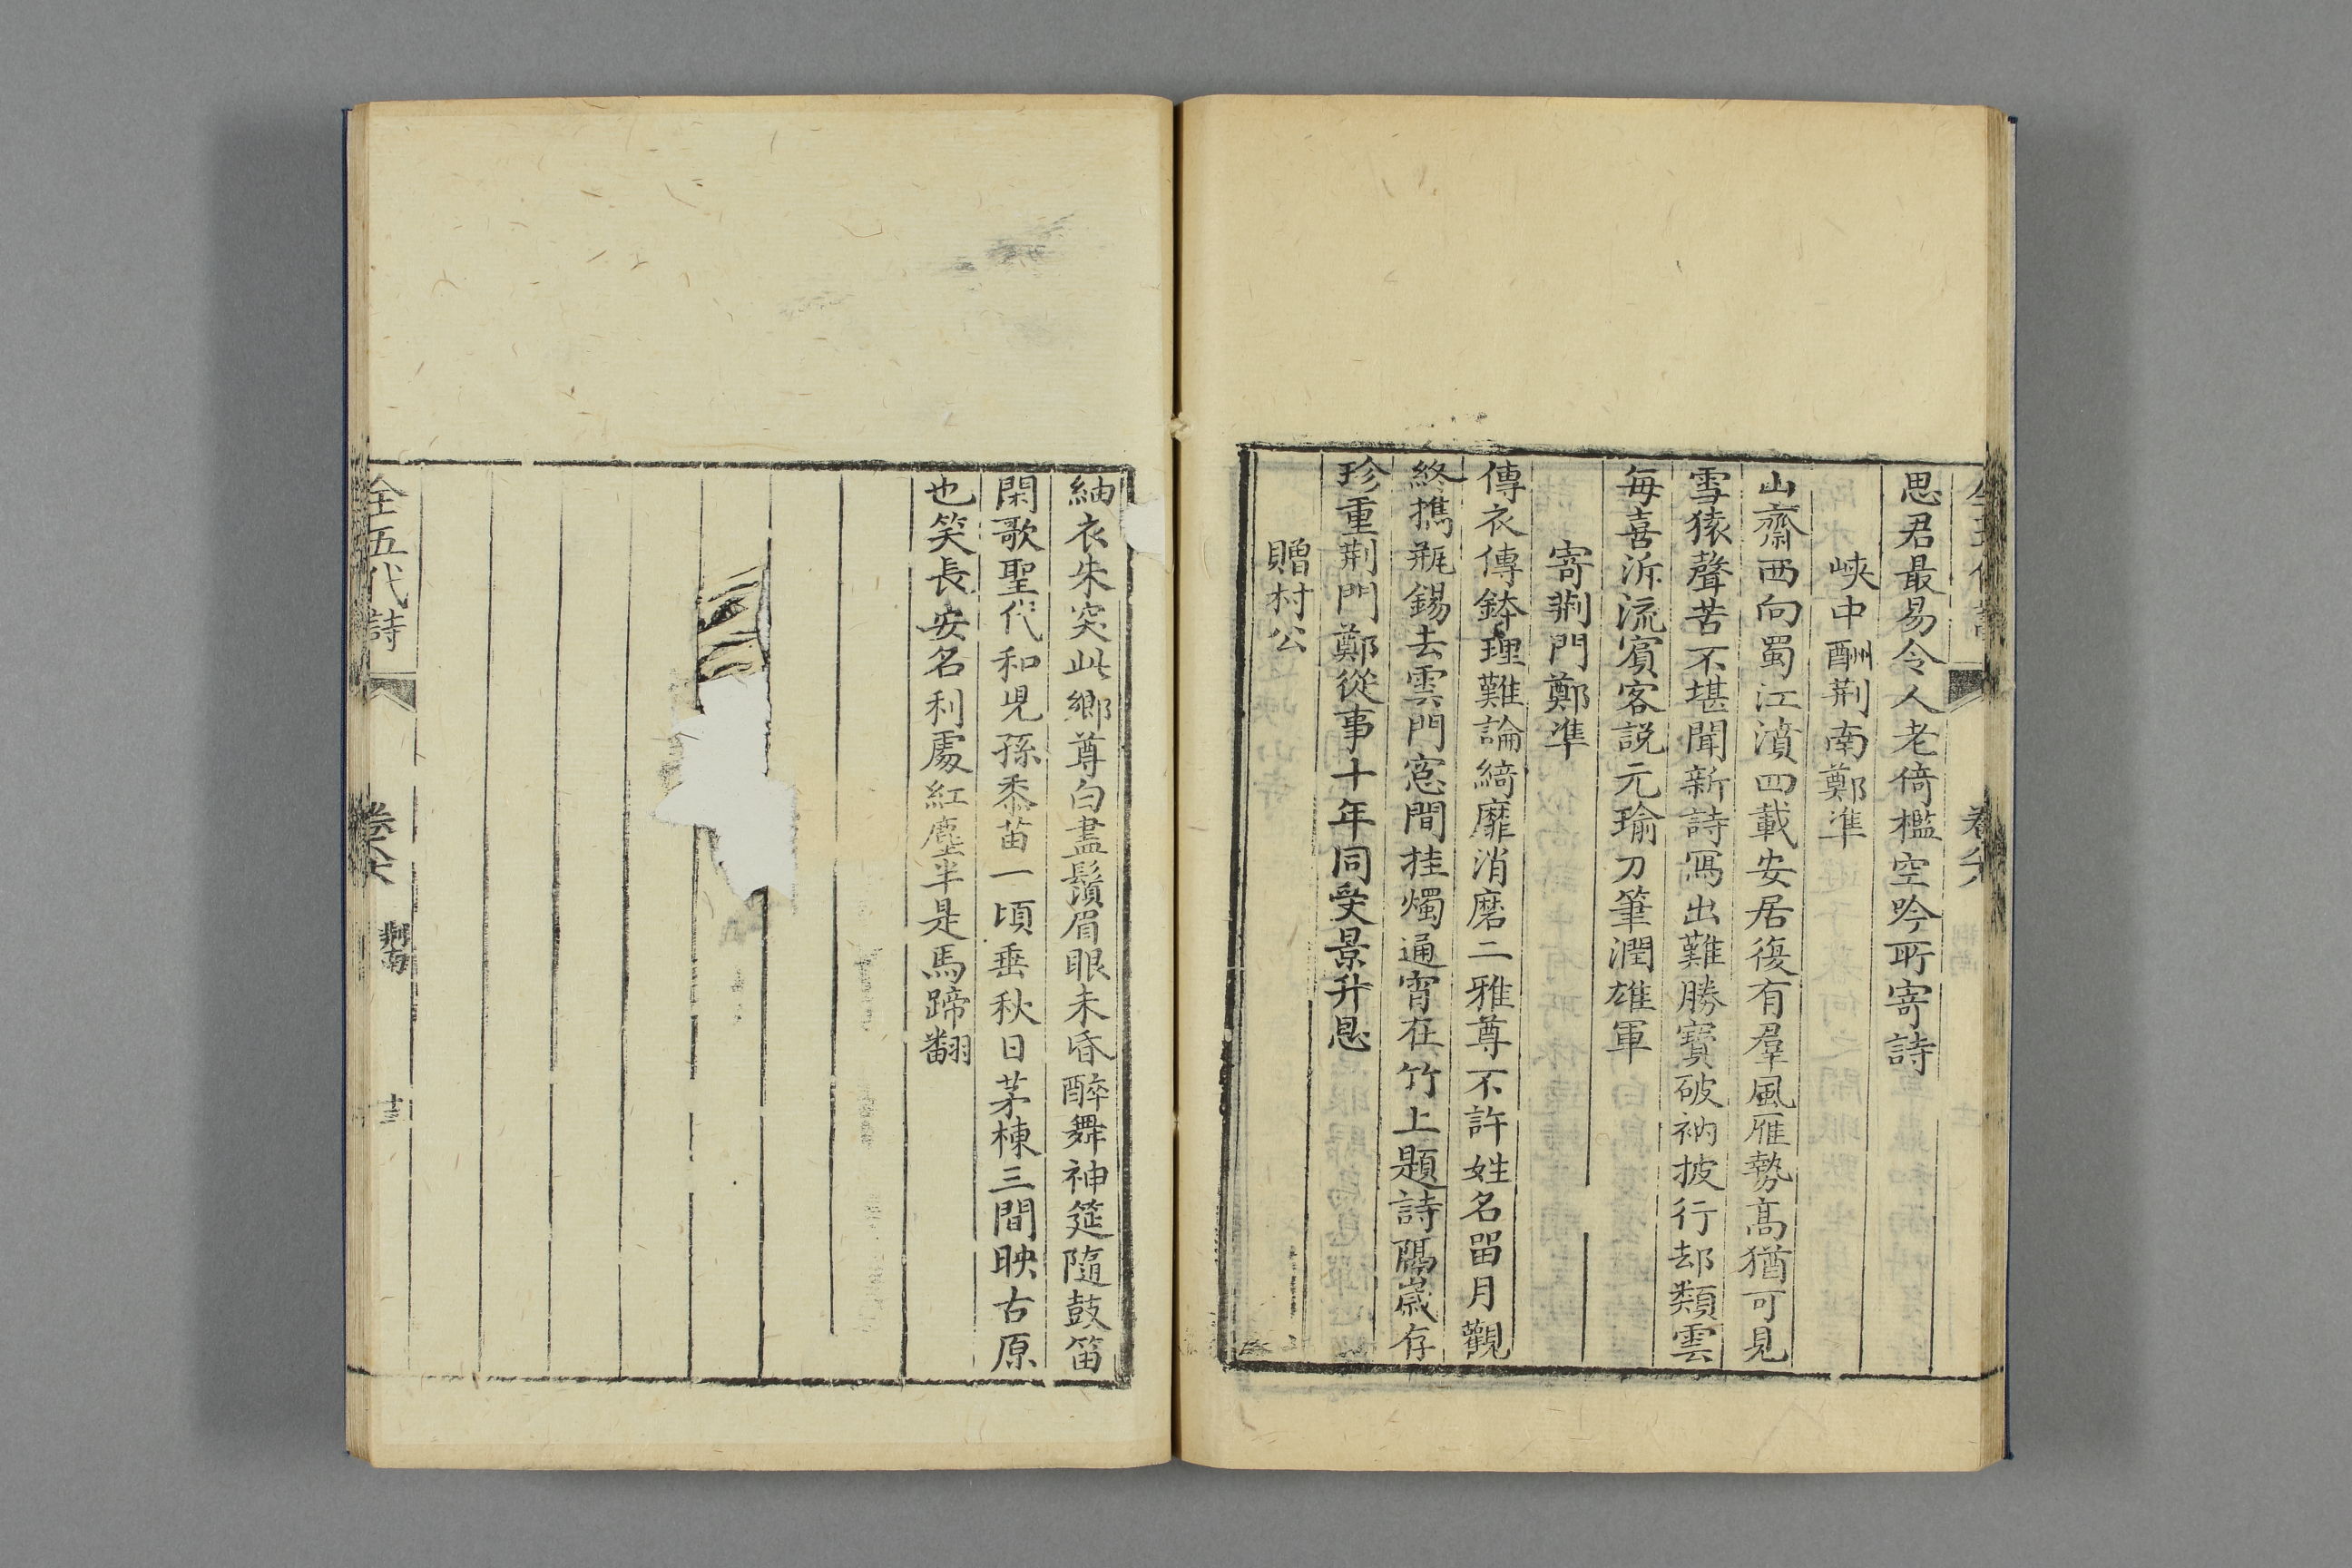 思君最易令人老倚檻空吟所寄詩
峽中酬荆南鄭準
山齋西向蜀江濆四載安居復有羣風雁勢髙猶可見
雪猿聲苦不堪聞新詩寫出難勝寶破衲披行却類雲
每喜泝流賓客説元瑜刀筆潤雄軍
寄荆門鄭準
傳衣傳鉢理難論綺靡消磨二雅尊不許姓名留月觀
終擕瓶錫去雲門窓間挂燭通宵在竹上題詩隔歲存
珍重荆門鄭從事十年同受景升恩
贈村公
紬衣朱突此鄉尊白盡鬚眉眼未昏醉舞神筵隨鼓笛
閑歌聖代和兒孫黍苗一頃垂秋日茅棟三間映古原
也笑長安名利處紅塵半是馬蹄翻
全五代詩
荆南
十三